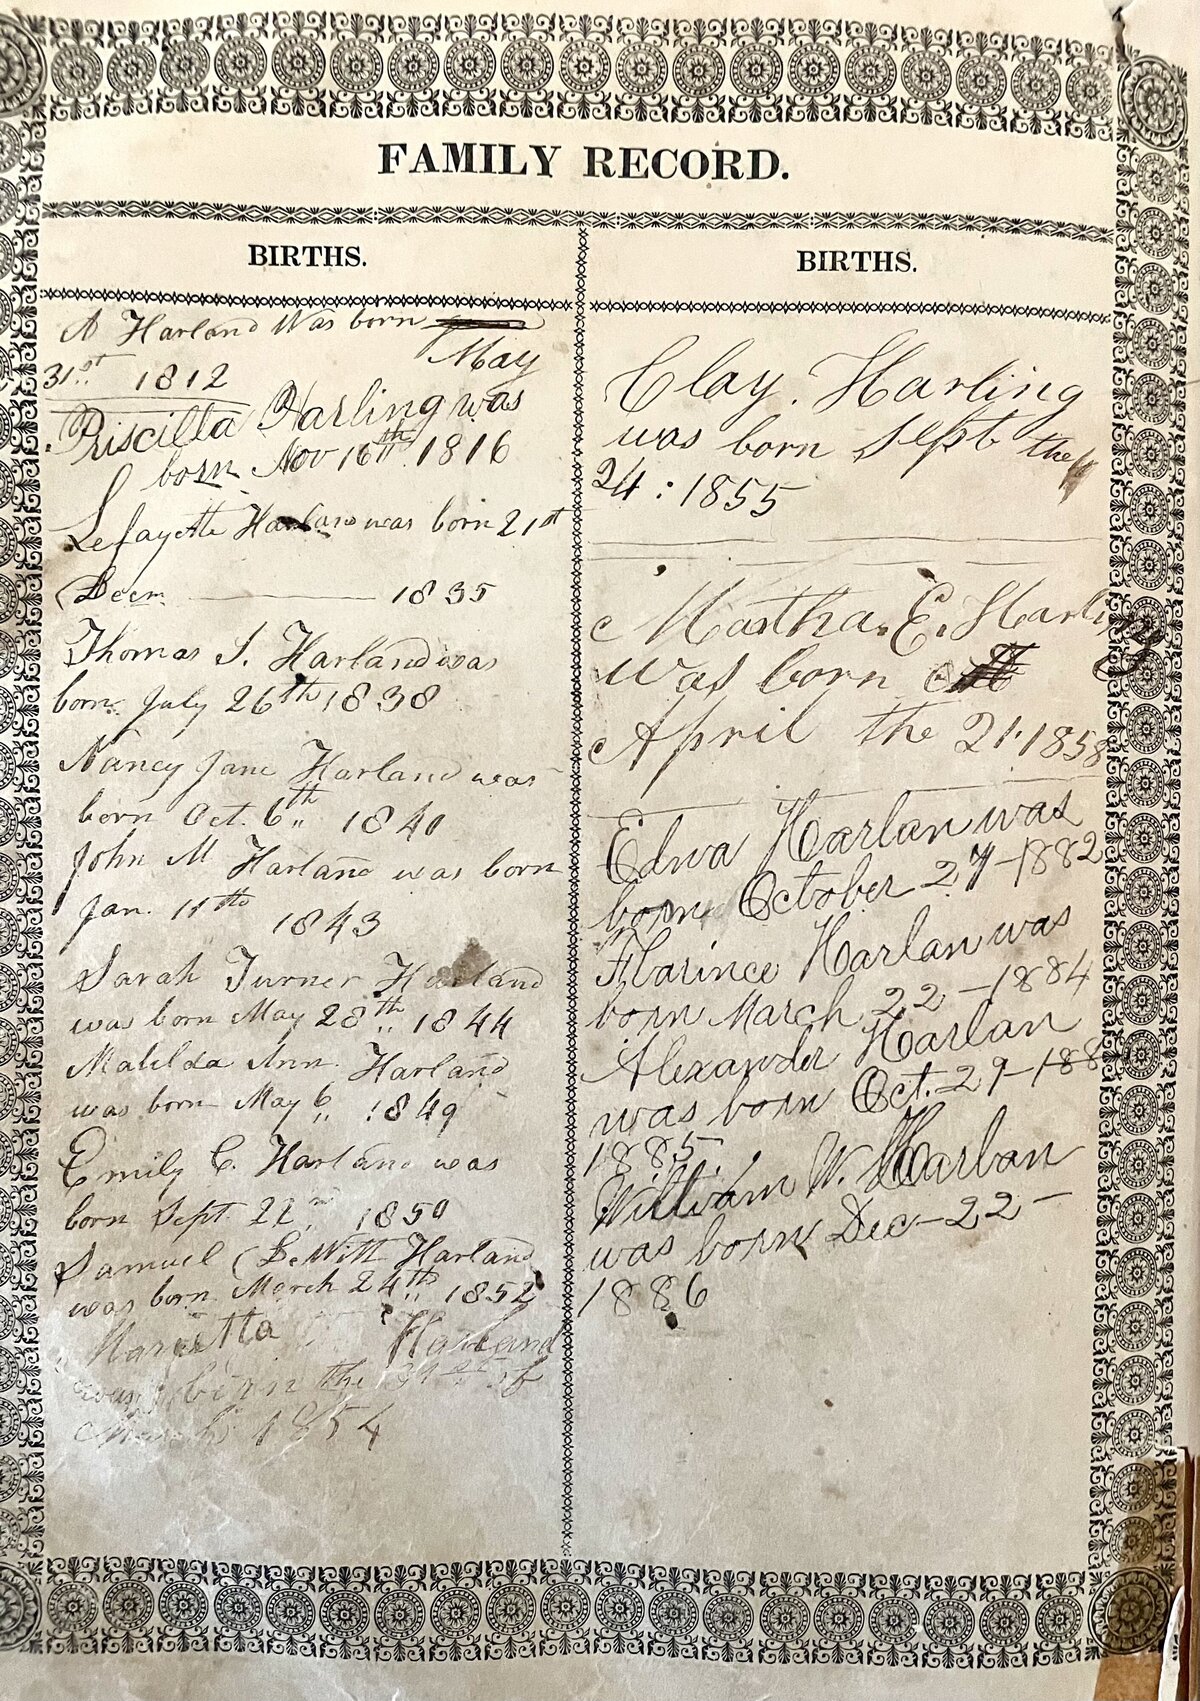 FAMILY RECORD.
BIRTHS.
A Harland Was born
May
31st 1812
Priscilla Harling was
born Nov 16th 1816
Lefayette Harland was born 21st
Decm 1835
Thomas S. Harland was
born July 26th 1838
Nancy Jane Harland was
born Oct. 6th 1840
John M Harland was born
Jan. 11th 1843
Sarah Turner Harland
was born May 28th 1844
Matilda Ann Harland
was born May 6 1849
Emily C. Harland was
born Sept. 22nd 1850
Samuel DeWitt Harland
was born March 24th 1852
Marietta Harland
was born the 31st of
March 1854
BIRTHS.
Clay. Harling
was born Sept the
24 : 1855
Martha. E. Harling
was born
April the 21. 1858
Edna Harlan was
born October 27-1882
Flarince Harlan was
born March 22-1884
Alexander Harlan
was born Oct. 29-188
1885
William W. Harlan
was born Dec-22-
1886